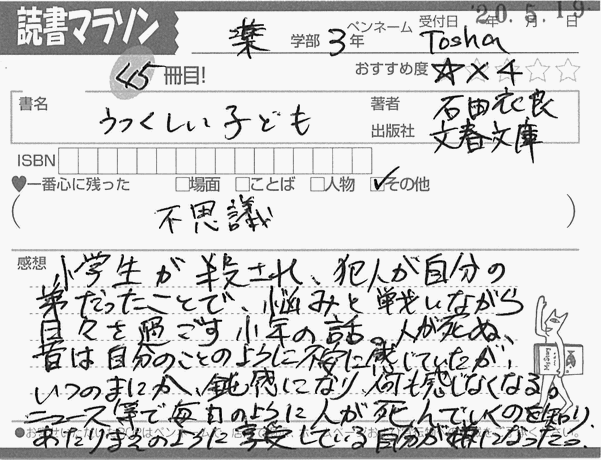 読書マラソン
薬 学部 3年 ペンネーム Tosha 受付日 '20年5月19日
45冊目!
おすすめ度 ☆×4
書名 うつくしい子ども
著者 石田衣良
出版社 文春文庫
ISBN
♥一番心に残った □場面 □ことば □人物 ☑その他
(不思議)
感想
小学生が殺され、犯人が自分の
弟だったことで、悩みと戦いながら
日々を過ごす少年の話。人が死ぬ、
昔は自分のことのように不安に感じていたが、
いつのまにか、鈍感になり何も感じなくなる。
ニュース等で毎日のように人が死んでいくのを知り、
あたりまえのように享受している自分が嫌になった